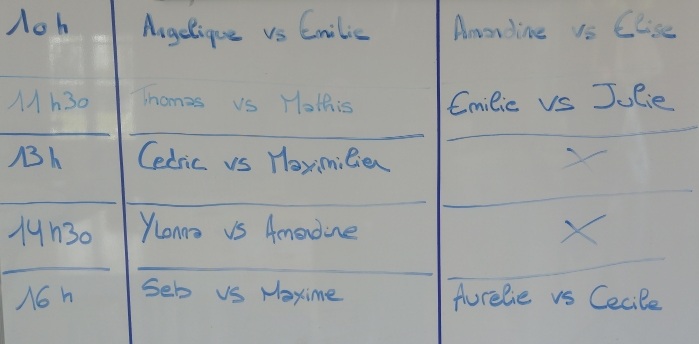 10h Angelique vs Emilie Amandine vs Elise
11h30 Thomas vs Mathis Emilie vs Julie
13h Cedric vs Maximilien X
14h30 Ylonna vs Amandine X
16h Seb vs Maxime Aurelie vs Cecile